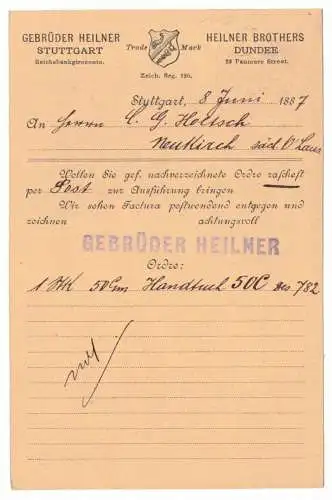 GEBRÜDER HEILNER
STUTTGART
Reichsbankgiroconto.
Trade Mark
Zeich. Reg. 120.
HEILNER BROTHERS
DUNDEE
29 Panmure Street.
Stuttgart, 8 Juni 1887
An Herrn C. G. Holtsch
Neukirch
Wollen Sie gef. nachverzeichnete Ordre raschest
per Post zur Ausführung bringen.
Wir sehen Factura postwendend entgegen und
zeichnen achtungsvoll
GEBRÜDER HEILNER
Ordre:
1 Stk 50 Cm Handtuch 50C 782